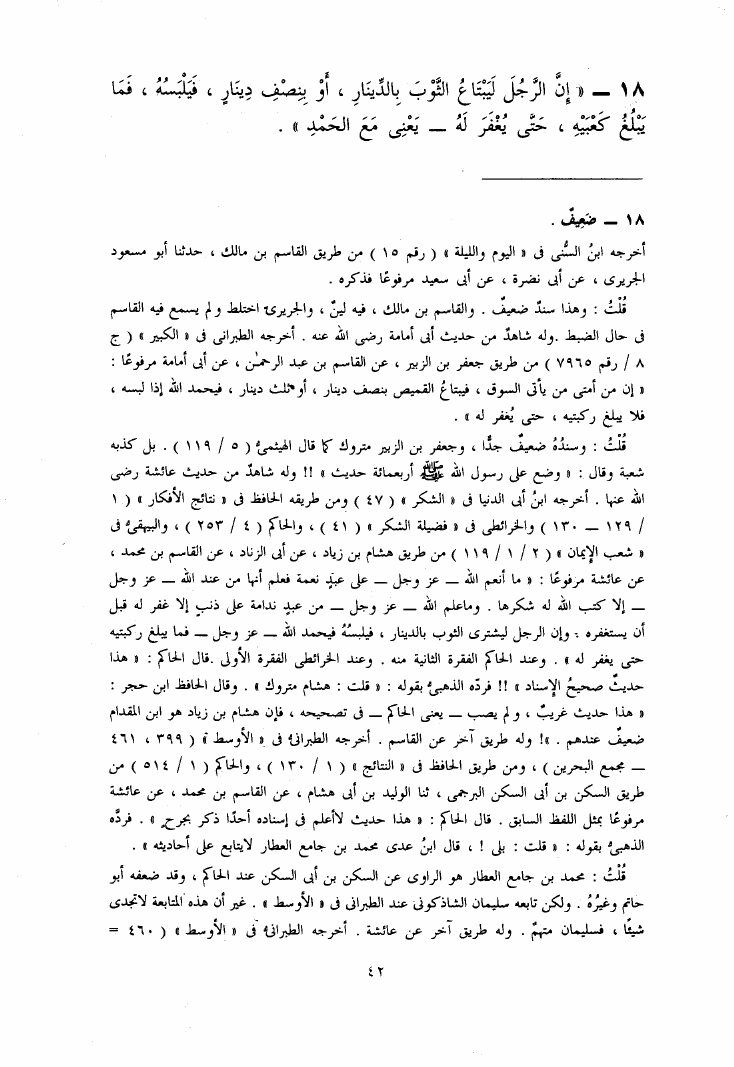 ١٨ — « إِنَّ الرَّجُلَ لَيَبْتَاعُ الثَّوْبَ بِالدِّينَارِ ، أَوْ بِنِصْفِ دِينَارٍ ، فَيَلْبَسُهُ ، فَمَا
يَبْلُغُ كَعْبَيْهِ ، حَتَّى يُغْفَرَ لَهُ — يَعْنِى مَعَ الحَمْدِ » .
١٨ — ضَعِيفٌ .
أخرجه ابنُ السُّنى فى « اليوم والليلة » ( رقم ١٥ ) من طريق القاسم بن مالك ، حدثنا أبو مسعود
الجريرى ، عن أبى نضرة ، عن أبى سعيد مرفوعًا فذكره .
قُلْتُ : وهذا سندٌ ضعيفٌ . والقاسم بن مالك ، فيه لينٌ ، والجريرىُ اختلط ولم يسمع فيه القاسم
فى حال الضبط .وله شاهدٌ من حديث أبى أمامة رضى الله عنه . أخرجه الطبرانى فى « الكبير » ( ج
٨ / رقم ٧٩٦٥ ) من طريق جعفر بن الزبير ، عن القاسم بن عبد الرحمٰن ، عن أبى أمامة مرفوعًا :
« إن من أمتى من يأتى السوق ، فيبتاعُ القميص بنصف دينار ، أو ثلث دينار ، فيحمد الله إذا لبسه ،
فلا يبلغ ركبتيه ، حتى يُغفر له » .
قُلْتُ : وسندُهُ ضعيفٌ جدًّا ، وجعفر بن الزبير متروك كما قال الهيثمىُّ ( ٥ / ١١٩ ) . بل كذبه
شعبة وقال : « وضع على رسول الله ﷺ أربعمائة حديث » !! وله شاهدٌ من حديث عائشة رضى
الله عنها . أخرجه ابنُ أبى الدنيا فى « الشكر » ( ٤٧ ) ومن طريقه الحافظ فى « نتائج الأفكار » ( ١
/ ١٢٩ — ١٣٠ ) والخرائطى فى « فضيلة الشكر » ( ٤١ ) ، والحاكم ( ٤ / ٢٥٣ ) ، والبيهقىُّ فى
« شعب الإيمان » ( ٢ / ١ / ١١٩ ) من طريق هشام بن زياد ، عن أبى الزناد ، عن القاسم بن محمد ،
عن عائشة مرفوعًا : « ما أنعم الله — عز وجل — على عبدٍ نعمة فعلم أنها من عند الله — عز وجل
— إلا كتب الله له شكرها . وماعلم الله — عز وجل — من عبدٍ ندامة على ذنبٍ إلا غفر له قبل
أن يستغفره . وإن الرجل ليشترى الثوب بالدينار ، فيلبسُهُ فيحمد الله — عز وجل — فما يبلغ ركبتيه
حتى يغفر له » . وعند الحاكم الفقرة الثانية منه . وعند الخرائطى الفقرة الأولى .قال الحاكم : « هذا
حديثٌ صحيحُ الإسناد » !! فردّه الذهبىُّ بقوله : « قلت : هشام متروك » . وقال الحافظ ابن حجر :
« هذا حديث غريبٌ ، ولم يصب — يعنى الحاكم — فى تصحيحه ، فإن هشام بن زياد هو ابن المقدام
ضعيفٌ عندهم . »! وله طريق آخر عن القاسم . أخرجه الطبرانىُّ فى « الأوسط » ( ٣٩٩ ، ٤٦١
— مجمع البحرين ) ، ومن طريق الحافظ فى « النتائج » ( ١ / ١٣٠ ) ، والحاكم ( ١ / ٥١٤ ) من
طريق السكن بن أبى السكن البرجمى ، ثنا الوليد بن أبى هشام ، عن القاسم بن محمد ، عن عائشة
مرفوعًا بمثل اللفظ السابق . قال الحاكم : « هذا حديث لاأعلم فى إسناده أحدًا ذكر بجرحٍ » . فردّه
الذهبىُّ بقوله : « قلت : بلى ! ، قال ابنُ عدى محمد بن جامع العطار لايتابع على أحاديثه » .
قُلْتُ : محمد بن جامع العطار هو الراوى عن السكن بن أبى السكن عند الحاكم ، وقد ضعفه أبو
حاتم وغيرُهُ . ولكن تابعه سليمان الشاذكونى عند الطبرانى فى « الأوسط » . غير أن هذه المتابعة لاتجدى
شيئًا ، فسليمان متهمٌ . وله طريق آخر عن عائشة . أخرجه الطبرانىُّ فى « الأوسط » ( ٤٦٠ =
٤٢